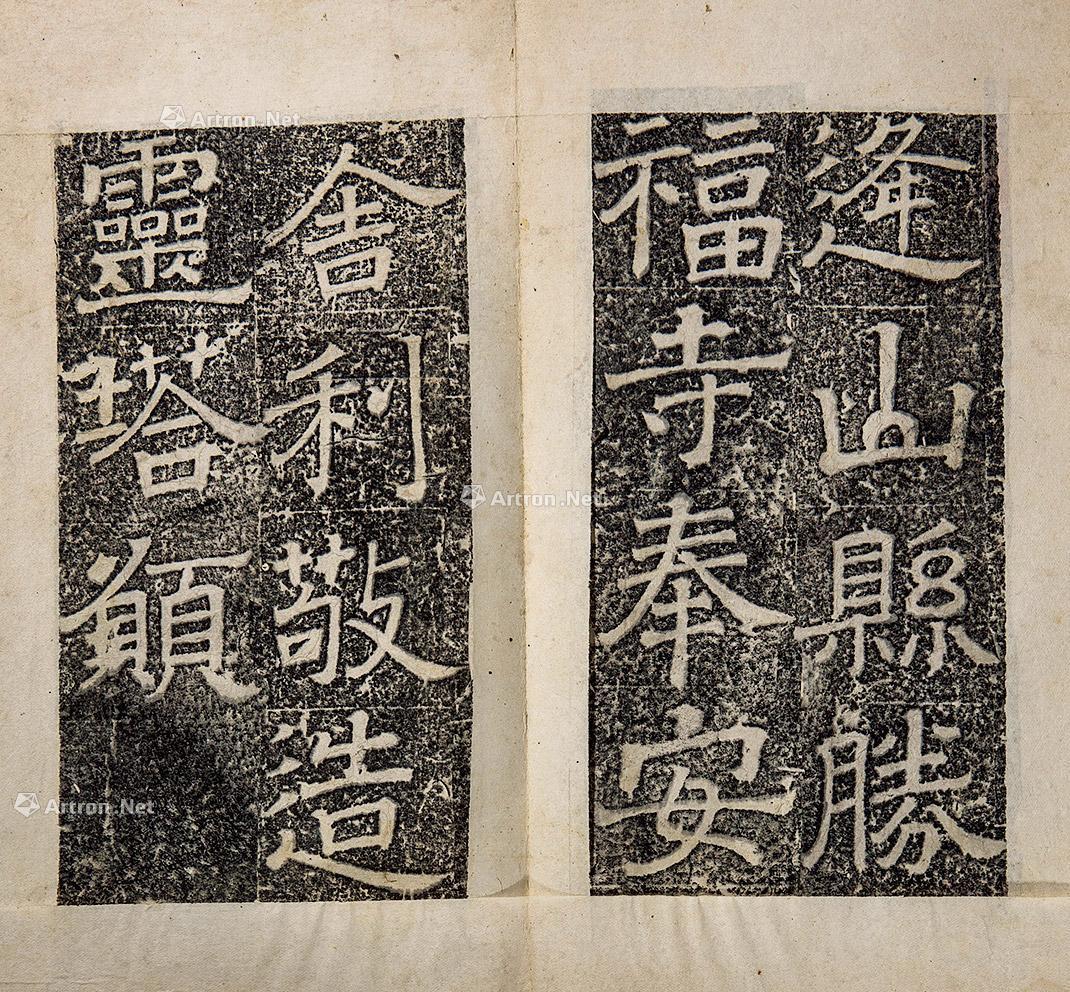 逄山縣勝
福寺奉安
舍利敬造
靈塔願
Artron.Net
Artron.Net
Artron.Net